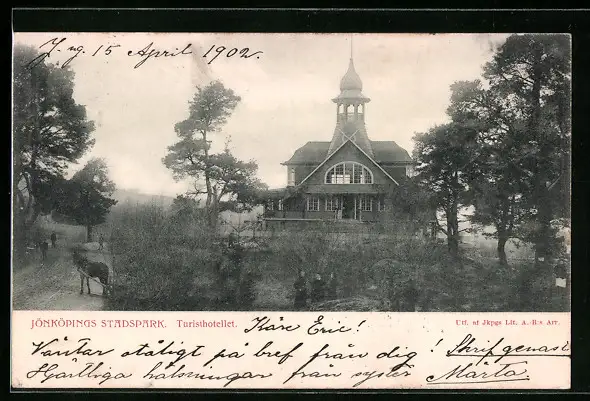 J-ng. 15 April 1902.
JÖNKÖPINGS STADSPARK. Turisthotellet.
Utf. af Jkpgs Lit. A.-B:s Arr.
Käre Eric!
Väntar otåligt på bref från dig! Skrif genast
Hjärtliga hälsningar från syster Märta.